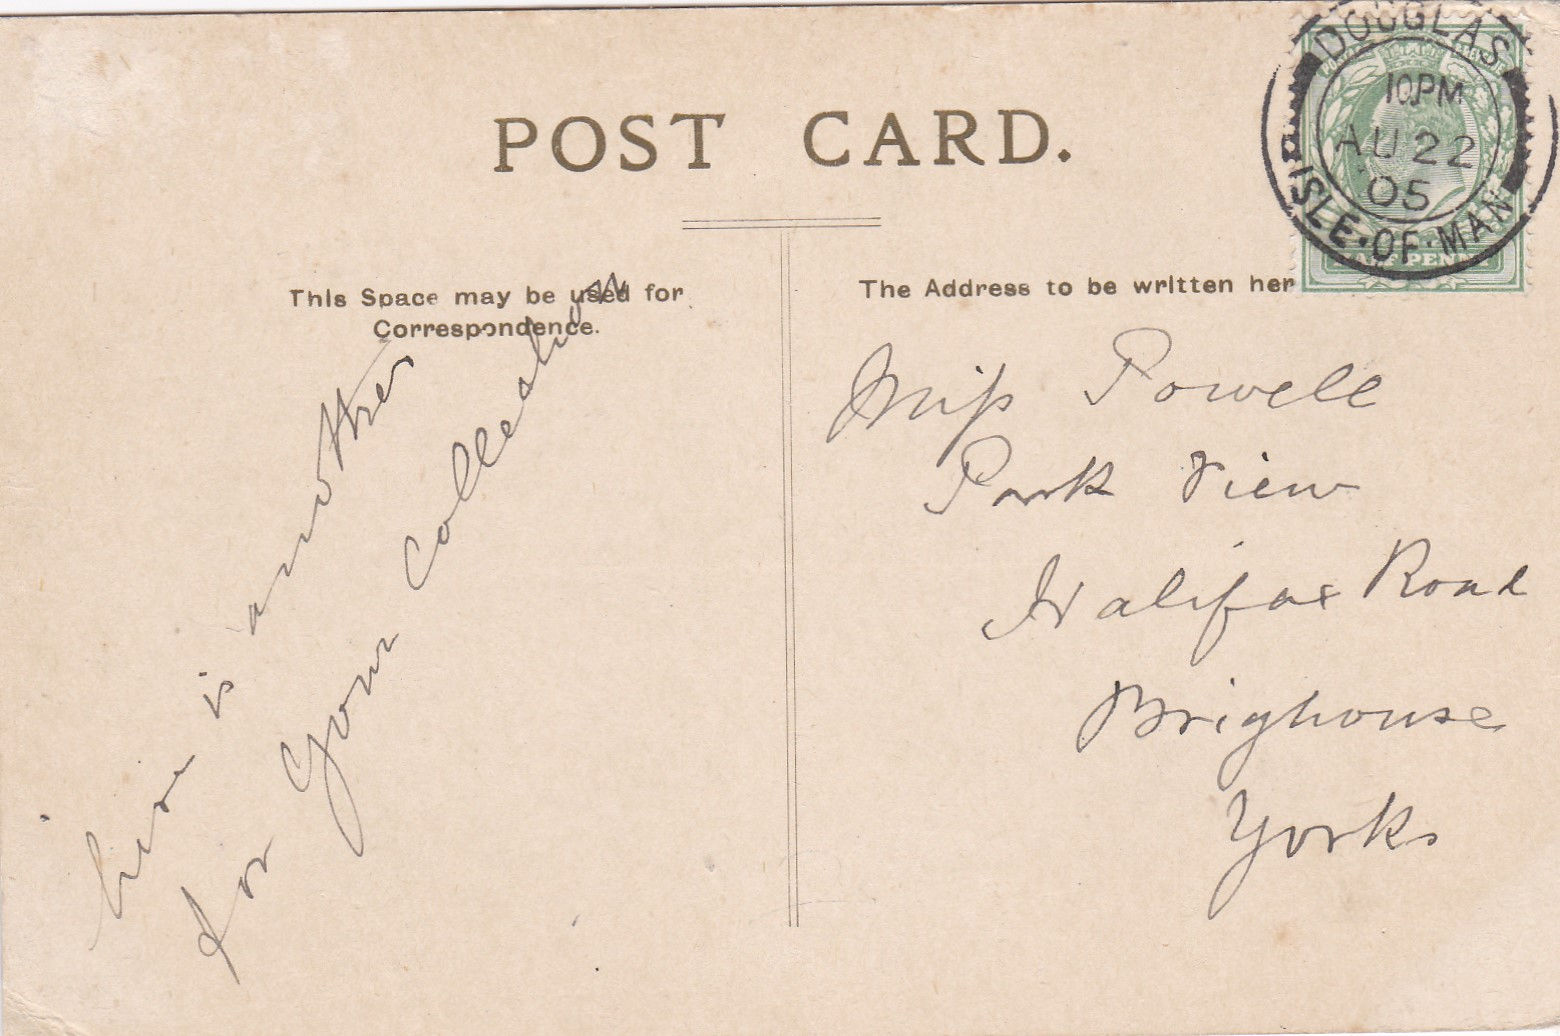 POST CARD.
This Space may be used for
Correspondence.
The Address to be written her
DOUGLAS
10PM
AU 22
05
ISLE·OF·MAN
HALF PENNY
here is another
for your collection
Miss Powell
Park View
Halifax Road
Brighouse
Yorks